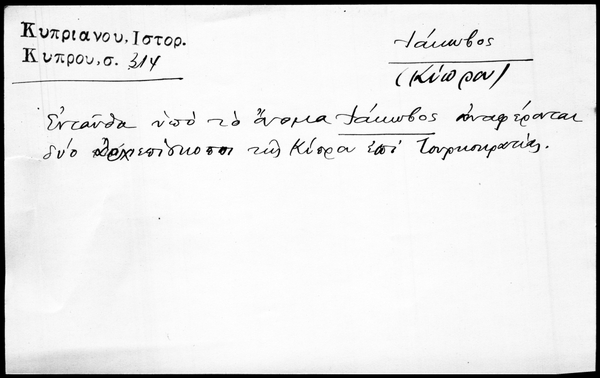 Κυπριανου, Ιστορ.
Κυπρου, σ. 314
Ιάκωβος
(Κύπρου)
Ἐνταῦθα ὑπὸ τὸ ὄνομα Ιάκωβος ἀναφέρονται
δύο ἀρχιεπίσκοποι τῆς Κύπρου ἐπὶ Τουρκοκρατίας.